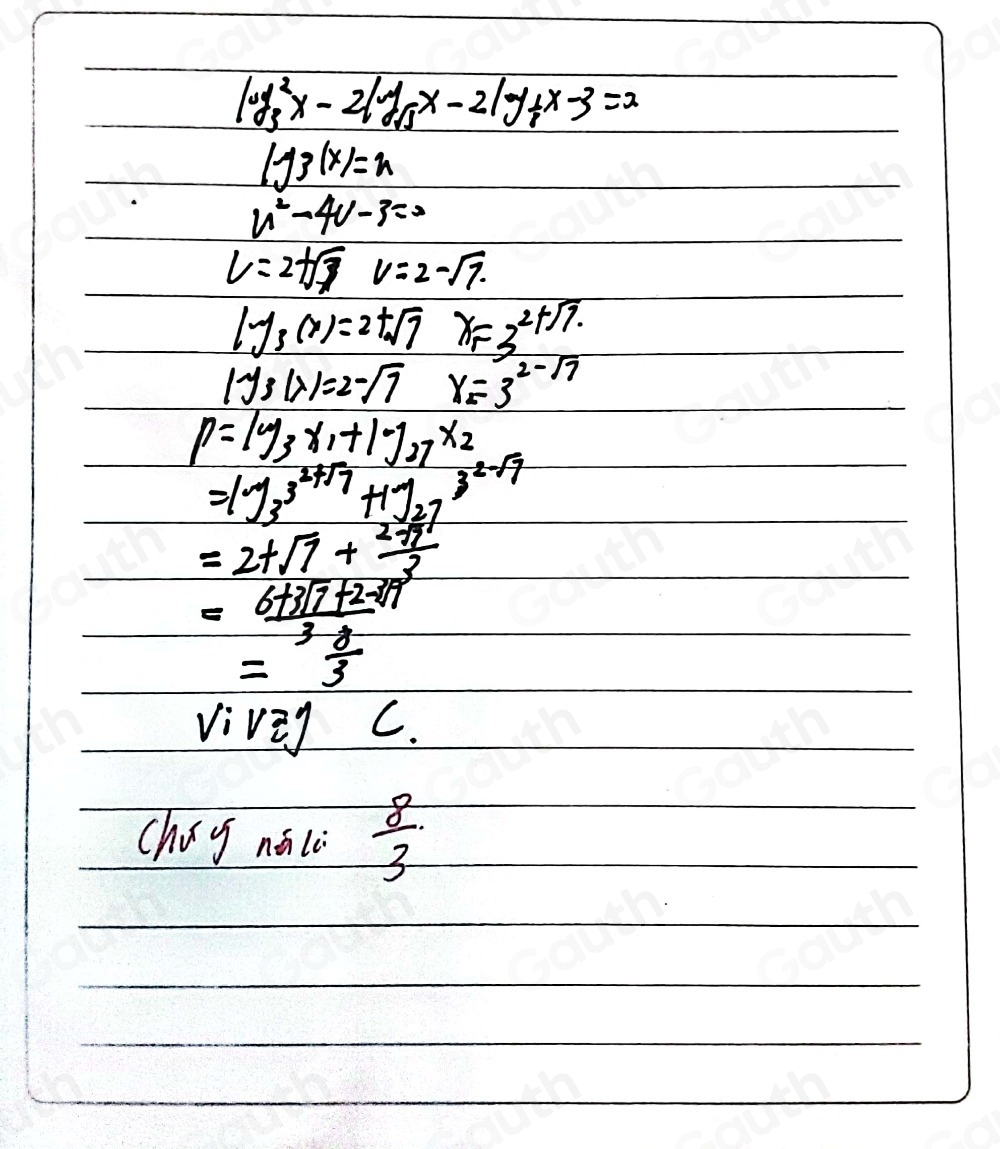 log₃²x - 2log_√3 x - 2log_⅓ x - 3 = 0
log3(x) = u
u² - 4u - 3 = 0
u = 2+√7 u = 2-√7.
log₃(x) = 2+√7 x₁ = 3^(2+√7).
log₃(x) = 2-√7 x₂ = 3^(2-√7)
p = log₃ x₁ + log₂₇ x₂
= log₃ 3^(2+√7) + log₂₇ 3^(2-√7)
= 2+√7 + (2-√7)/3
= (6+3√7+2-3√7)/3
= 8/3
Vì vậy C.
Chú ý nó là 8/3.